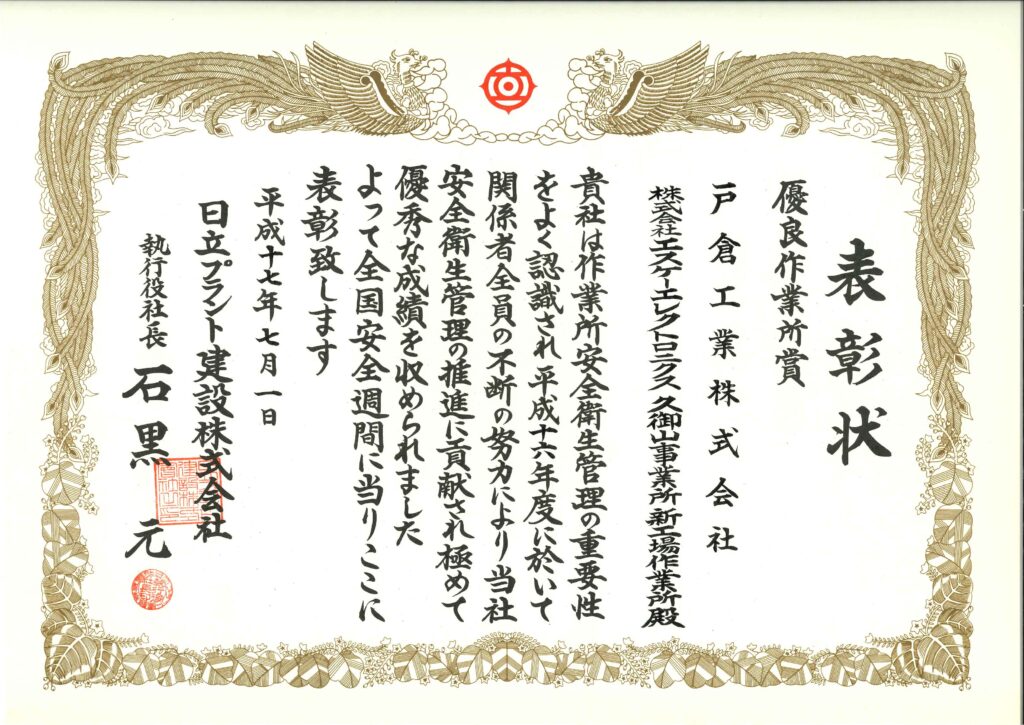 表彰状
優良作業所賞
戸倉工業株式会社
株式会社エスケーエレクトロニクス久御山事業所新工場作業所殿
貴社は作業所安全衛生管理の重要性
をよく認識され平成十六年度に於いて
関係者全員の不断の努力により当社
安全衛生管理の推進に貢献され極めて
優秀な成績を収められました
よって全国安全週間に当りここに
表彰致します
平成十七年七月一日
日立プラント建設株式会社
執行役社長 石黒 元